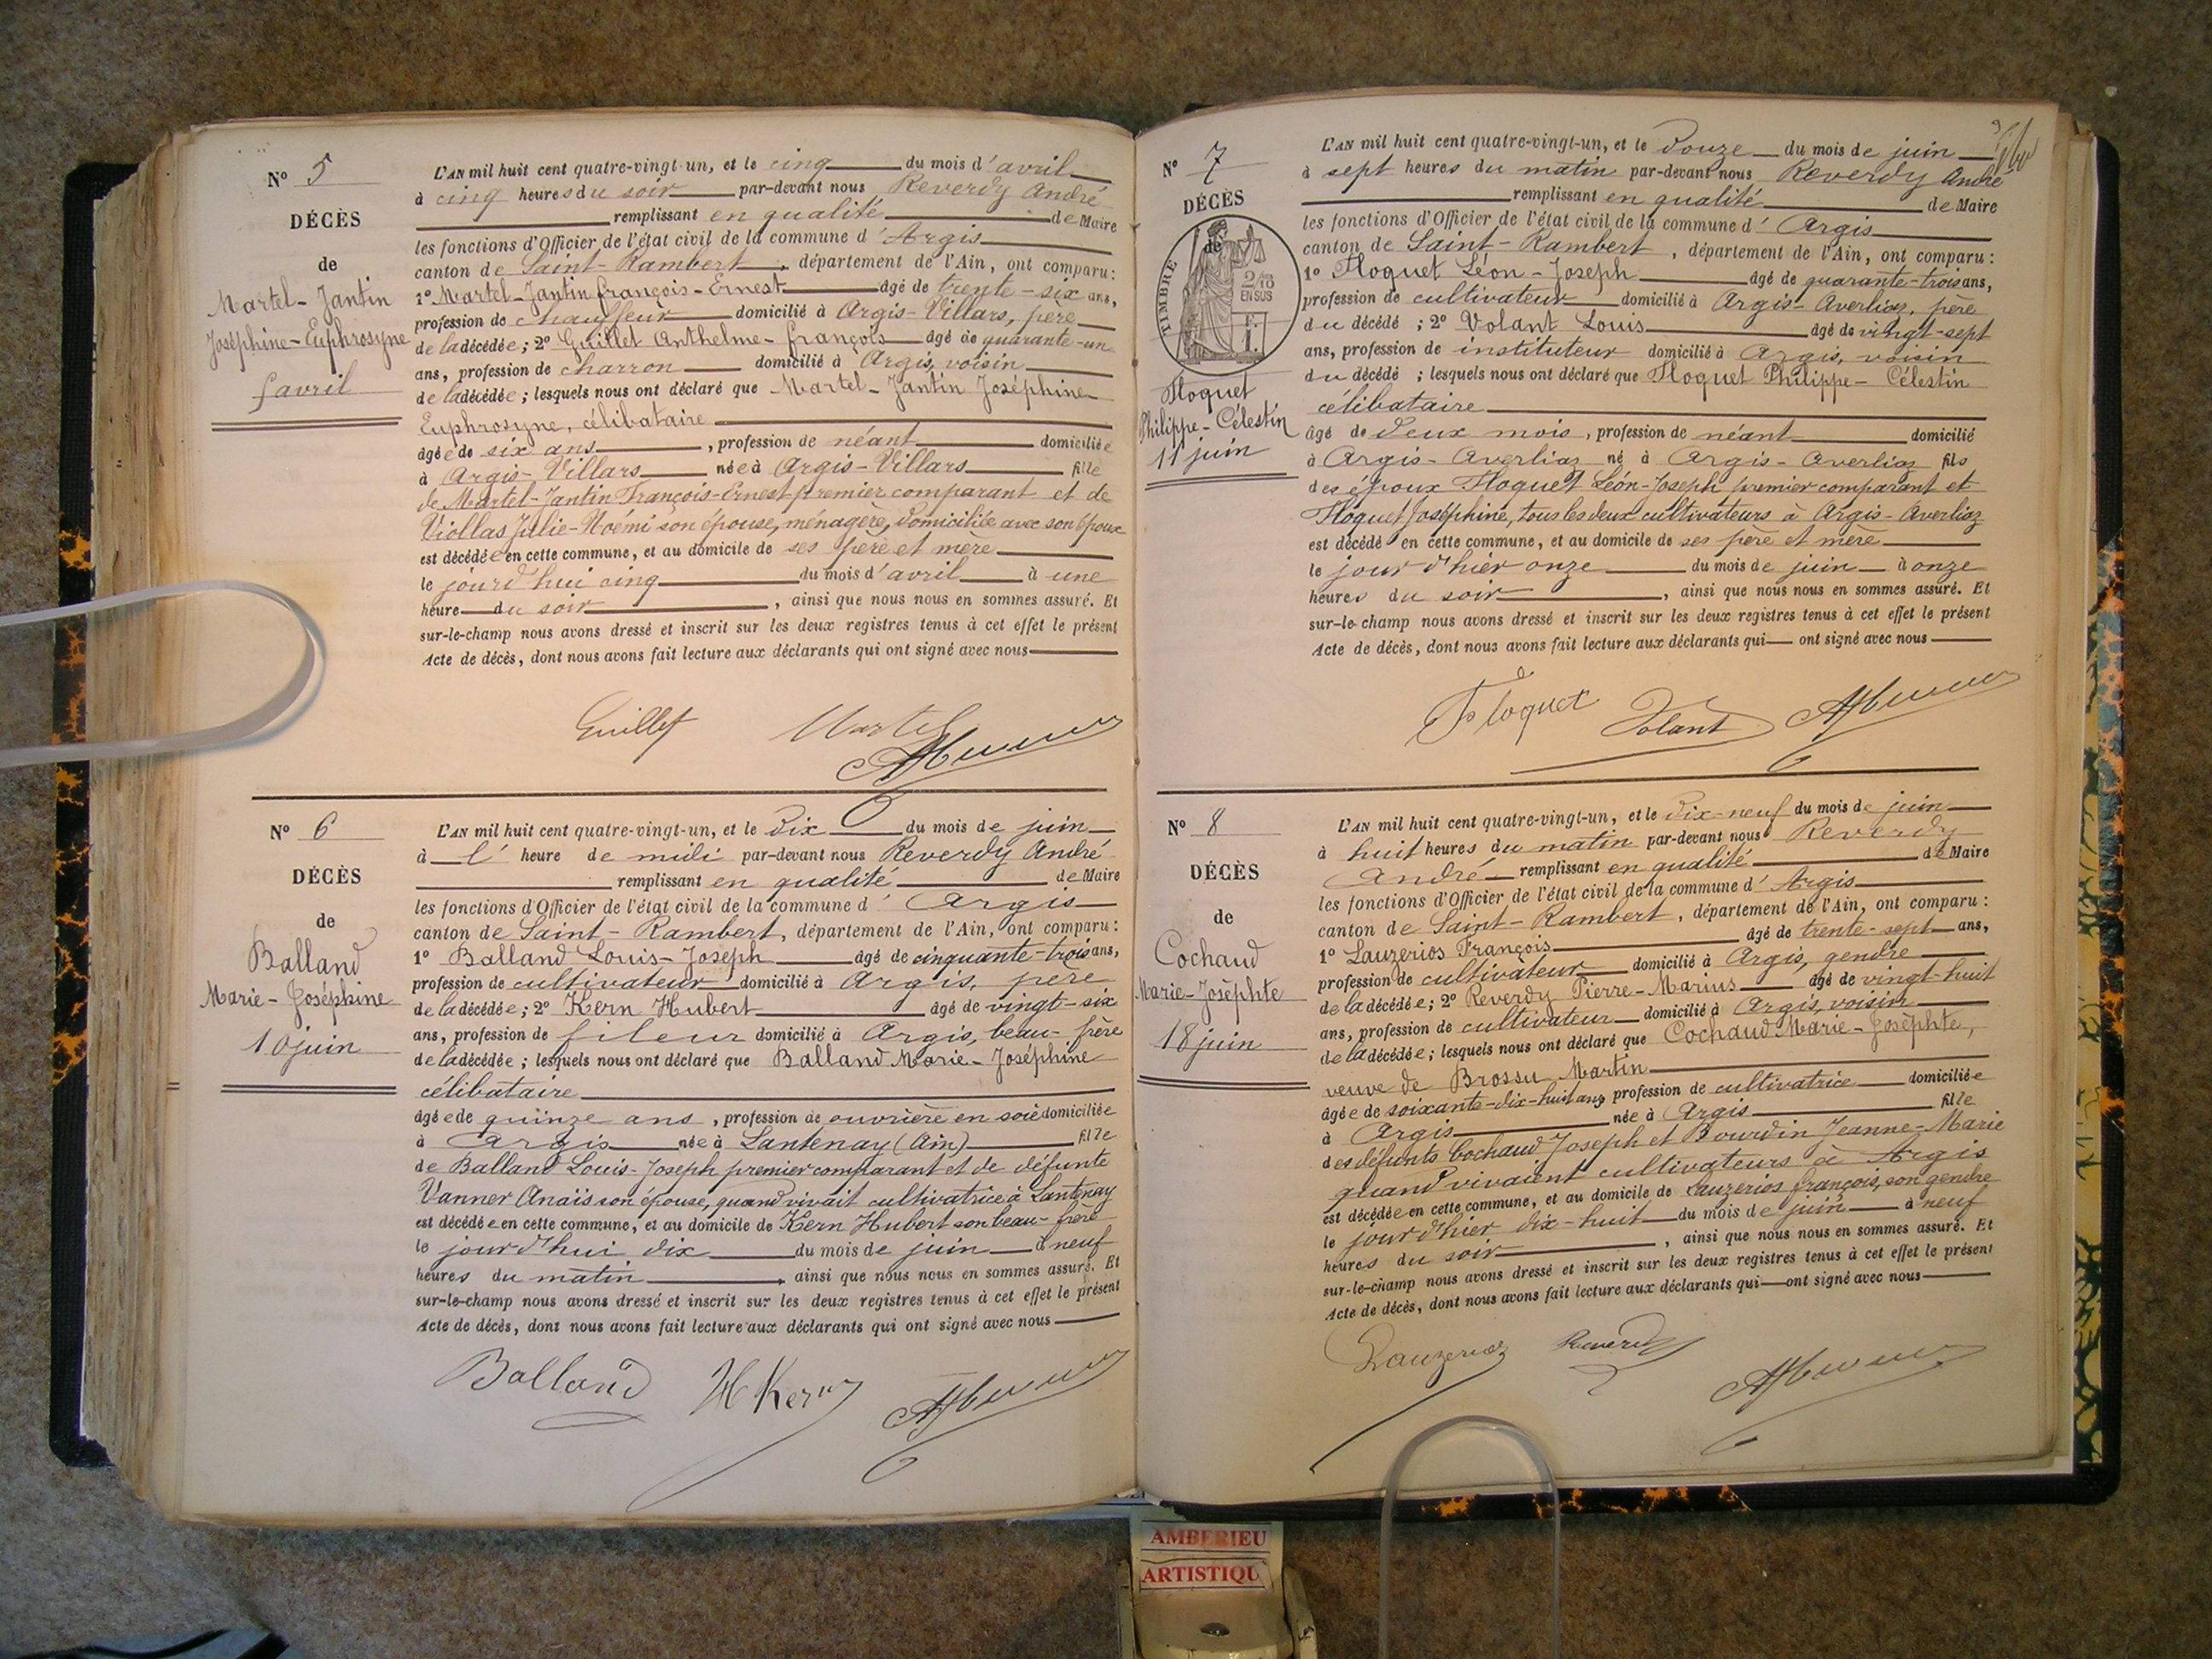 N° 5
DÉCÈS
de
Martel-Jantin
Joséphine-Euphrosyne
5 avril
L'AN mil huit cent quatre-vingt-un, et le cinq du mois d'avril
à cinq heures du soir par-devant nous Reverdy André
remplissant en qualité de Maire
les fonctions d'Officier de l'état civil de la commune d'Argis
canton de Saint-Rambert, département de l'Ain, ont comparu :
1° Martel-Jantin François-Ernest âgé de trente-six ans,
profession de chauffeur domicilié à Argis-Villars, père
de la décédée ; 2° Guillet Anthelme-François âgé de quarante-un
ans, profession de charron domicilié à Argis, voisin
de la décédée ; lesquels nous ont déclaré que Martel-Jantin Joséphine
Euphrosyne, célibataire
âgée de six ans, profession de néant domiciliée
à Argis-Villars née à Argis-Villars fille
de Martel-Jantin François-Ernest premier comparant et de
Viollas Julie-Noémi son épouse, ménagère, domiciliée avec son époux
est décédée en cette commune, et au domicile de ses père et mère
le jourd'hui cinq du mois d'avril à une
heure du soir, ainsi que nous nous en sommes assuré. Et
sur-le-champ nous avons dressé et inscrit sur les deux registres tenus à cet effet le présent
Acte de décès, dont nous avons fait lecture aux déclarants qui ont signé avec nous
Guillet Martel
N° 6
DÉCÈS
de
Balland
Marie-Joséphine
10 juin
L'AN mil huit cent quatre-vingt-un, et le dix du mois de juin
à l'heure de midi par-devant nous Reverdy André
remplissant en qualité de Maire
les fonctions d'Officier de l'état civil de la commune d'Argis
canton de Saint-Rambert, département de l'Ain, ont comparu :
1° Balland Louis-Joseph âgé de cinquante-trois ans,
profession de cultivateur domicilié à Argis, père
de la décédée ; 2° Kern Hubert âgé de vingt-six
ans, profession de fileur domicilié à Argis, beau-frère
de la décédée ; lesquels nous ont déclaré que Balland Marie-Joséphine
célibataire
âgée de quinze ans, profession de ouvrière en soie domiciliée
à Argis née à Lantenay (Ain) fille
de Balland Louis-Joseph premier comparant et de défunte
Vanner Anaïs son épouse, quand vivait cultivatrice à Lantenay
est décédée en cette commune, et au domicile de Kern Hubert son beau-frère
le jourd'hui dix du mois de juin à neuf
heures du matin, ainsi que nous nous en sommes assuré. Et
sur-le-champ nous avons dressé et inscrit sur les deux registres tenus à cet effet le présent
Acte de décès, dont nous avons fait lecture aux déclarants qui ont signé avec nous
Balland H Kern
N° 7
DÉCÈS
de
TIMBRE
2/10
EN SUS
Floquet
Philippe-Célestin
11 juin
L'AN mil huit cent quatre-vingt-un, et le douze du mois de juin
à sept heures du matin par-devant nous Reverdy André
remplissant en qualité de Maire
les fonctions d'Officier de l'état civil de la commune d'Argis
canton de Saint-Rambert, département de l'Ain, ont comparu :
1° Floquet Léon-Joseph âgé de quarante-trois ans,
profession de cultivateur domicilié à Argis-Averliaz, père
du décédé ; 2° Volant Louis âgé de vingt-sept
ans, profession de instituteur domicilié à Argis, voisin
du décédé ; lesquels nous ont déclaré que Floquet Philippe-Célestin
célibataire
âgé de deux mois, profession de néant domicilié
à Argis-Averliaz né à Argis-Averliaz fils
des époux Floquet Léon-Joseph premier comparant et
Floquet Joséphine, tous les deux cultivateurs à Argis-Averliaz
est décédé en cette commune, et au domicile de ses père et mère
le jour d'hier onze du mois de juin à onze
heures du soir, ainsi que nous nous en sommes assuré. Et
sur-le-champ nous avons dressé et inscrit sur les deux registres tenus à cet effet le présent
Acte de décès, dont nous avons fait lecture aux déclarants qui ont signé avec nous
Floquet Volant
N° 8
DÉCÈS
de
Cochaud
Marie-Josephte
18 juin
L'AN mil huit cent quatre-vingt-un, et le dix-neuf du mois de juin
à huit heures du matin par-devant nous Reverdy
André remplissant en qualité de Maire
les fonctions d'Officier de l'état civil de la commune d'Argis
canton de Saint-Rambert, département de l'Ain, ont comparu :
1° Lauzerios François âgé de trente-sept ans,
profession de cultivateur domicilié à Argis, gendre
de la décédée ; 2° Reverdy Pierre-Marius âgé de vingt-huit
ans, profession de cultivateur domicilié à Argis, voisin
de la décédée ; lesquels nous ont déclaré que Cochaud Marie-Josephte,
veuve de Brossu Martin
âgée de soixante-dix-huit ans profession de cultivatrice domiciliée
à Argis née à Argis fille
des défunts Cochaud Joseph et Bourdin Jeanne-Marie
quand vivaient cultivateurs à Argis
est décédée en cette commune, et au domicile de Lauzerios François, son gendre
le jour d'hier dix-huit du mois de juin à neuf
heures du soir, ainsi que nous nous en sommes assuré. Et
sur-le-champ nous avons dressé et inscrit sur les deux registres tenus à cet effet le présent
Acte de décès, dont nous avons fait lecture aux déclarants qui ont signé avec nous
Lauzerios Reverdy
AMBERIEU
ARTISTIQU